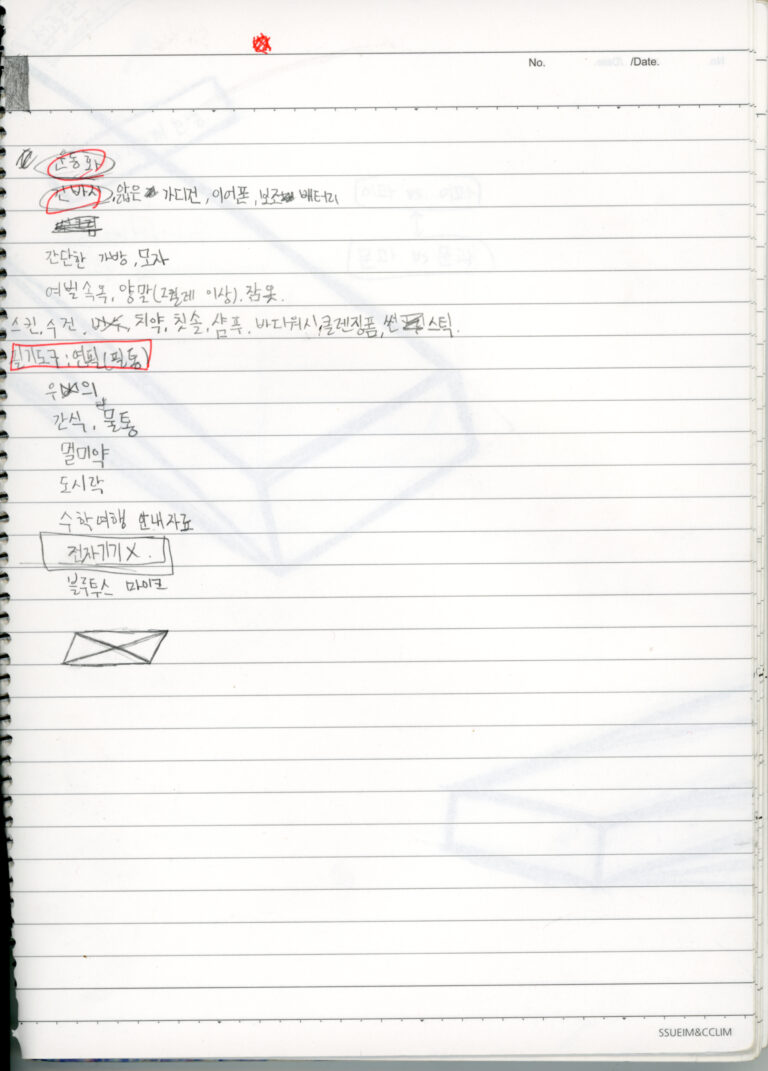 No. /Date.
운동화
긴바지, 얇은 가디건, 이어폰, 보조 배터리
간단한 가방, 모자
여벌속옷, 양말(2켤레 이상), 잠옷.
스킨, 수건, 치약, 칫솔, 샴푸, 바디워시, 클렌징폼, 썬 스틱.
필기도구; 연필(필통)
우의
간식, 물통
멀미약
도시락
수학여행 안내자료
전자기기 X.
블루투스 마이크
SSUEIM&CCLIM